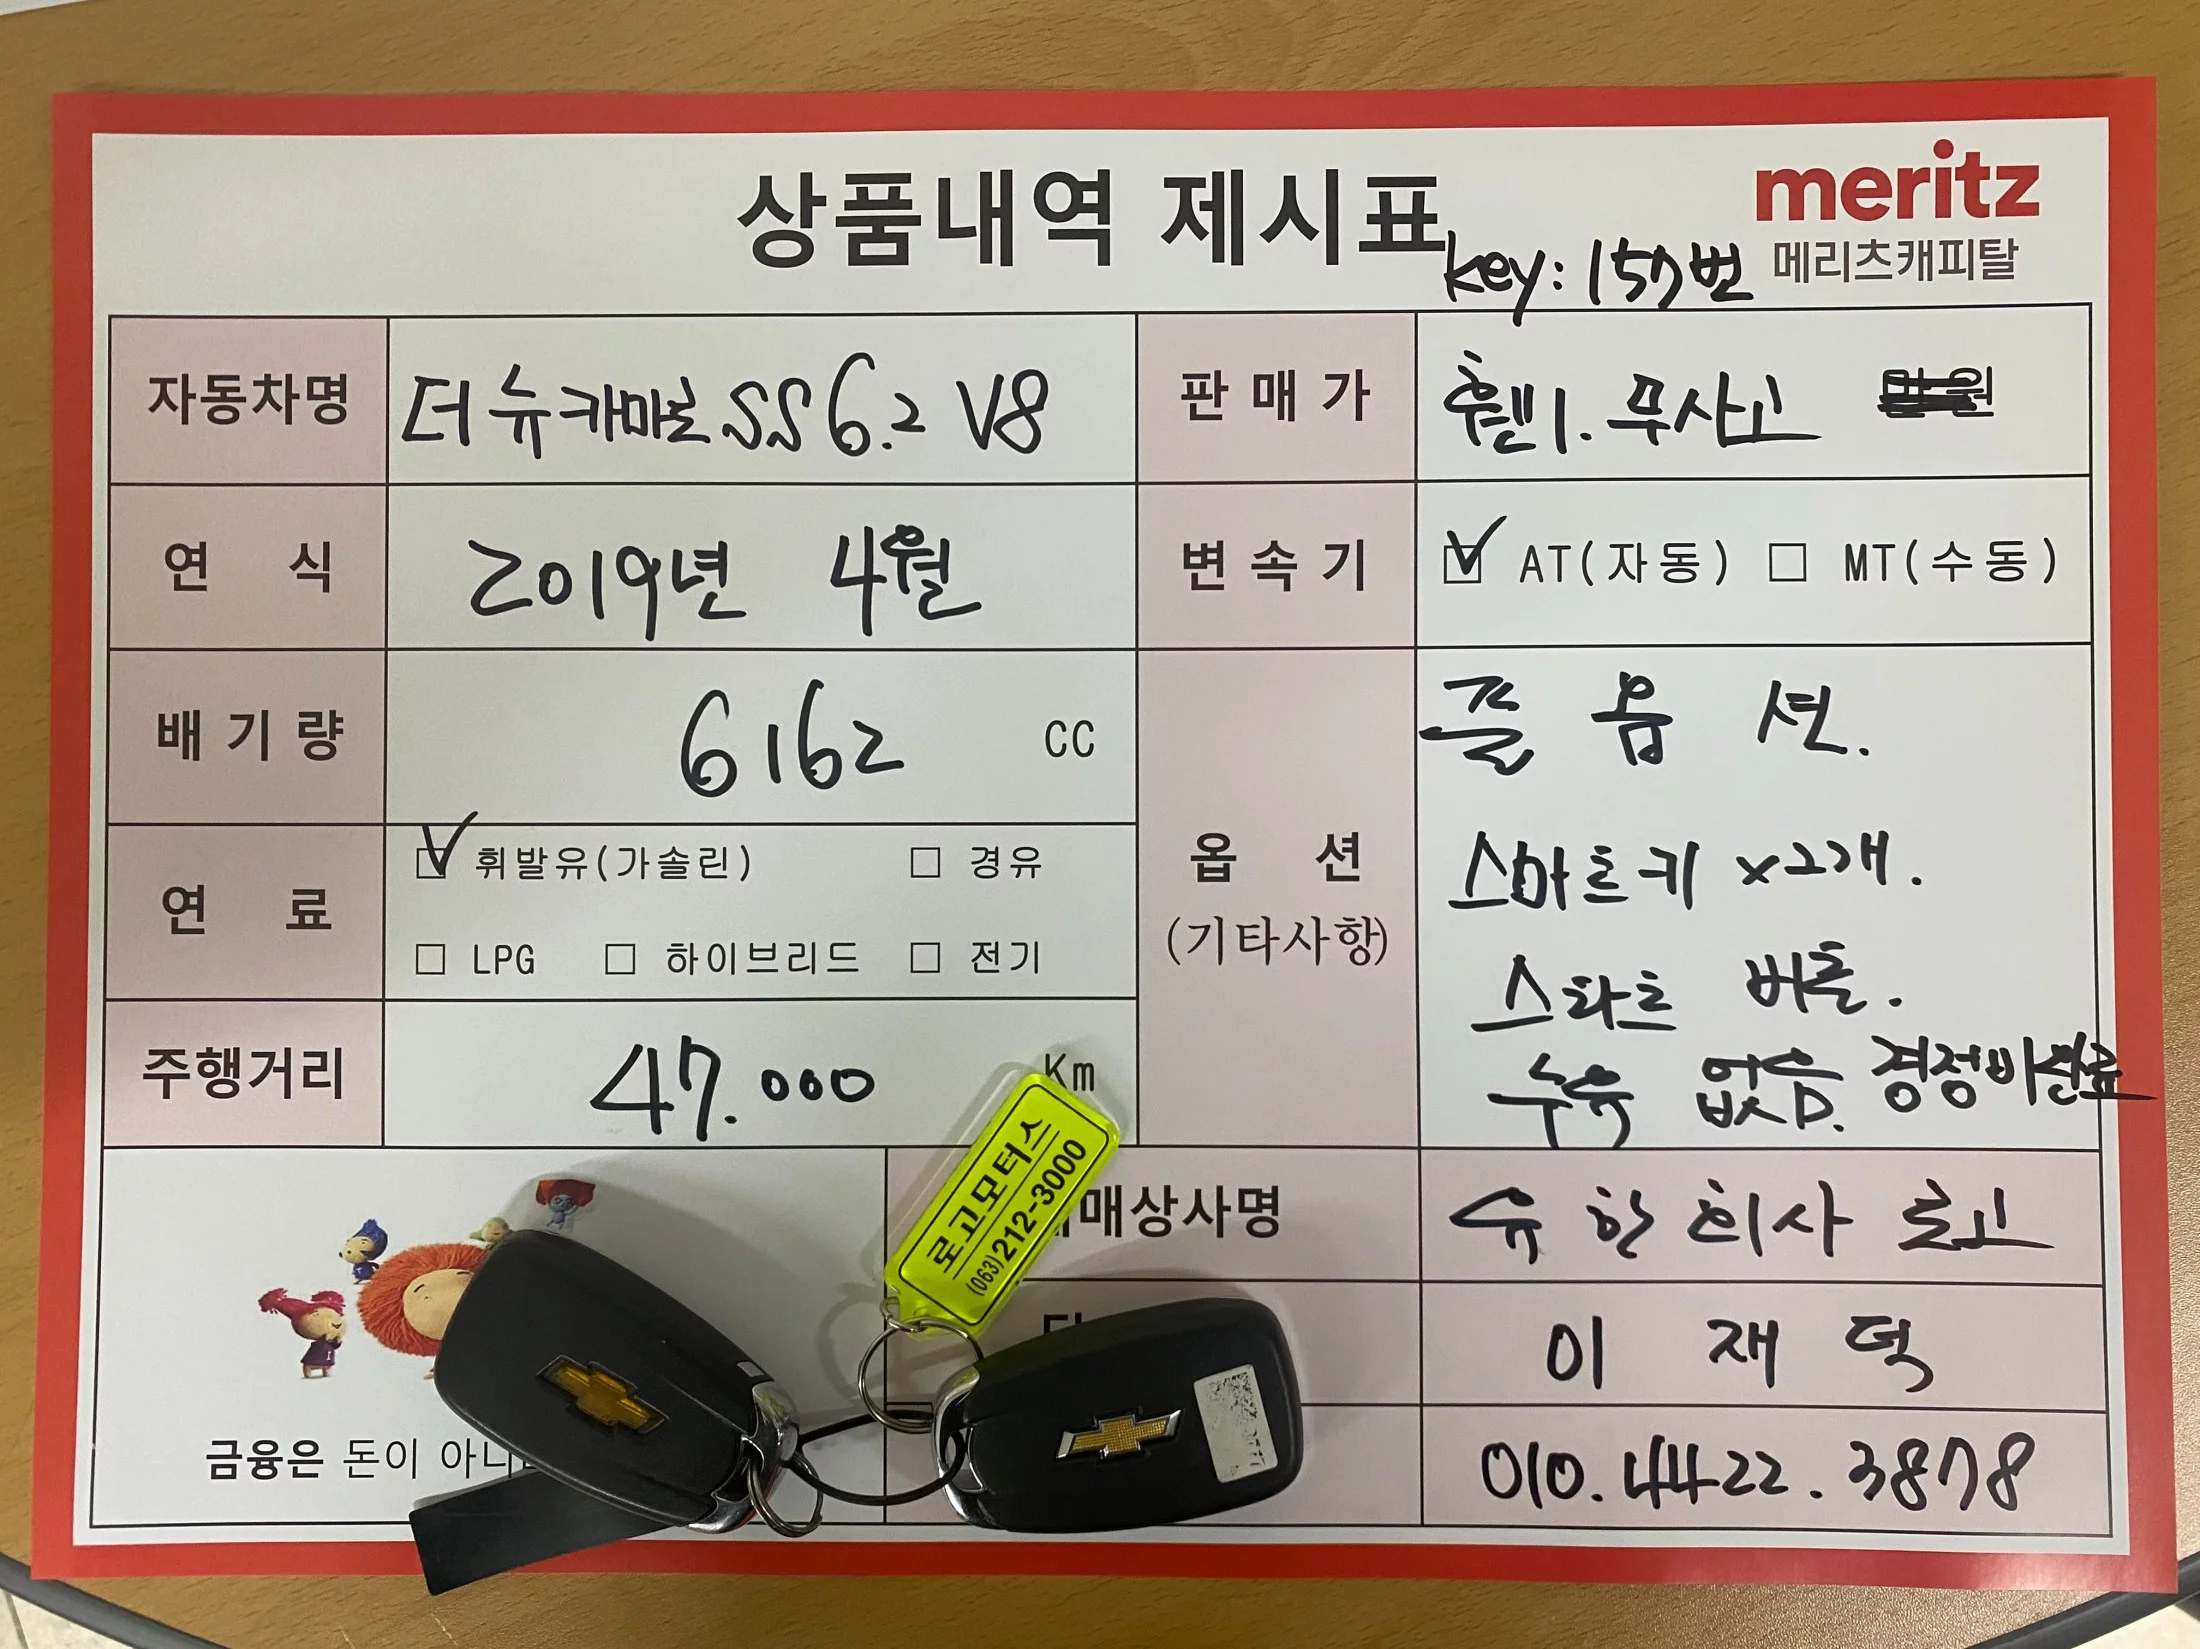 상품내역 제시표
meritz
메리츠캐피탈
key: 157번
자동차명 더 뉴 카마로 SS 6.2 V8
판매가 휀1. 무사고
연식 2019년 4월
변속기 ☑ AT(자동) ☐ MT(수동)
배기량 6162 CC
연료 ☑ 휘발유(가솔린) ☐ 경유
☐ LPG ☐ 하이브리드 ☐ 전기
주행거리 47.000 Km
옵션
(기타사항)
풀 옵 션.
스마트키 x 2개.
스타트 버튼.
누유 없음. 경정비완료
매상사명 유한회사 로고
이재덕
010.4422.3878
로고모터스
(063)212-3000
금융은 돈이 아니